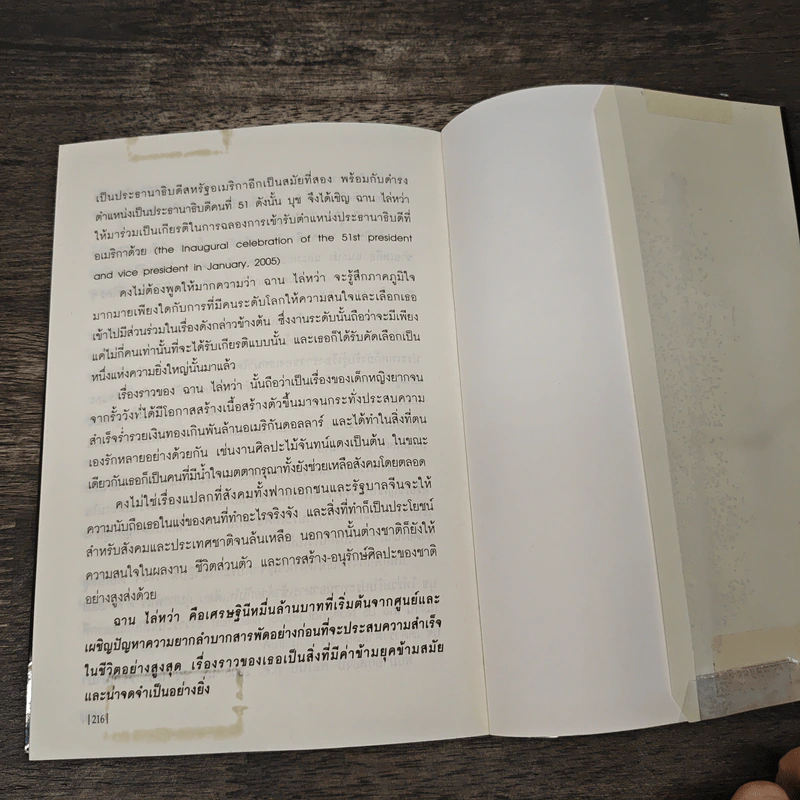 เป็นประธานาธิบดีสหรัฐอเมริกาอีกเป็นสมัยที่สอง พร้อมกับดำรง
ตำแหน่งเป็นประธานาธิบดีคนที่ 51 ดังนั้น บุช จึงได้เชิญ ฉาน ไล่หว่า
ให้มาร่วมเป็นเกียรติในการฉลองการเข้ารับตำแหน่งประธานาธิบดีที่
อเมริกาด้วย (the Inaugural celebration of the 51st president
and vice president in January, 2005)
คงไม่ต้องพูดให้มากความว่า ฉาน ไล่หว่า จะรู้สึกภาคภูมิใจ
มากมายเพียงใดกับการที่มีคนระดับโลกให้ความสนใจและเลือกเธอ
เข้าไปมีส่วนร่วมในเรื่องดังกล่าวข้างต้น ซึ่งงานระดับนั้นถือว่าจะมีเพียง
แค่ไม่กี่คนเท่านั้นที่จะได้รับเกียรติแบบนั้น และเธอก็ได้รับคัดเลือกเป็น
หนึ่งแห่งความยิ่งใหญ่นั้นมาแล้ว
เรื่องราวของ ฉาน ไล่หว่า นั้นถือว่าเป็นเรื่องของเด็กหญิงยากจน
จากรั้ววังที่ได้มีโอกาสสร้างเนื้อสร้างตัวขึ้นมาจนกระทั่งประสบความ
สำเร็จร่ำรวยเงินทองเกินพันล้านอเมริกันดอลลาร์ และได้ทำในสิ่งที่ตน
เองรักหลายอย่างด้วยกัน เช่นงานศิลปะไม้จันทน์แดงเป็นต้น ในขณะ
เดียวกันเธอก็เป็นคนที่มีน้ำใจเมตตากรุณาทั้งยังช่วยเหลือสังคมโดยตลอด
คงไม่ใช่เรื่องแปลกที่สังคมทั้งฟากเอกชนและรัฐบาลจีนจะให้
ความนับถือเธอในแง่ของคนที่ทำอะไรจริงจัง และสิ่งที่ทำก็เป็นประโยชน์
สำหรับสังคมและประเทศชาติจนล้นเหลือ นอกจากนั้นต่างชาติก็ยังให้
ความสนใจในผลงาน ชีวิตส่วนตัว และการสร้าง-อนุรักษ์ศิลปะของชาติ
อย่างสูงส่งด้วย
ฉาน ไล่หว่า คือเศรษฐินีหมื่นล้านบาทที่เริ่มต้นจากศูนย์และ
เผชิญปัญหาความยากลำบากสารพัดอย่างก่อนที่จะประสบความสำเร็จ
ในชีวิตอย่างสูงสุด เรื่องราวของเธอเป็นสิ่งที่มีค่าข้ามยุคข้ามสมัย
และน่าจดจำเป็นอย่างยิ่ง
|216|